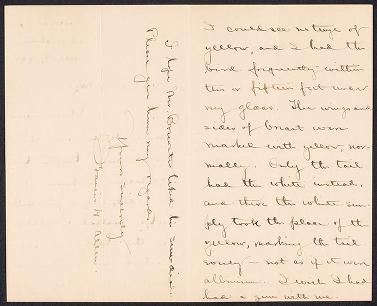 I could see no tinge of
yellow, and I had the
bird frequently within
ten or fifteen feet under
my glass. The wings and
sides of breast were
marked with yellow, nor-
mally. Only the tail
had the white instead,
and there the white sim-
ply took the place of the
yellow, marking the tail
- not as if it were
albinism. I wish I had
had a gun with me.
I hope Mr. Brewster liked the
Please give him my regards.
Yours sincerely,
Francis H. Allen.